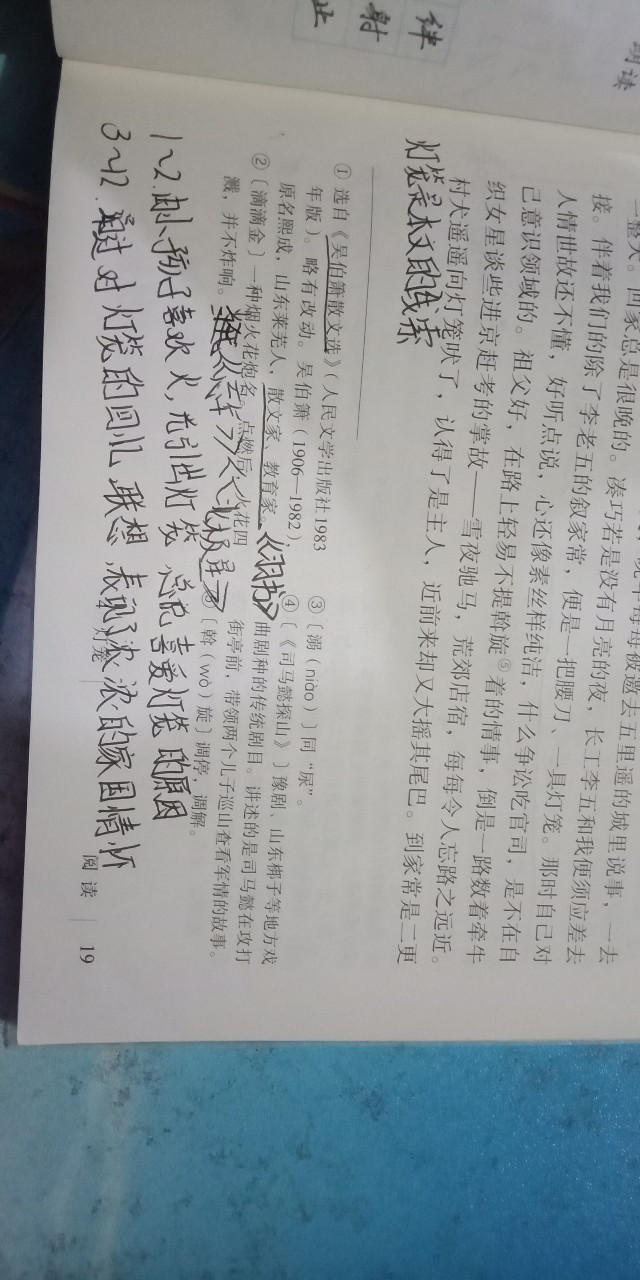 绊
射
止
朗读
一整天。回家总是很晚的。凑巧若是没有月亮的夜，长工李五和我便须应差去
接。伴着我们的除了李老五的叙家常，便是一把腰刀、一具灯笼。那时自己对
人情世故还不懂，好听点说，心还像素丝样纯洁，什么争讼吃官司，是不在自
己意识领域的。祖父好，在路上轻易不提斡旋⑤着的情事，倒是一路数着牵牛
织女星谈些进京赶考的掌故——雪夜驰马，荒郊店宿，每每令人忘路之远近。
村犬遥遥向灯笼吠了，认得了是主人，近前来却又大摇其尾巴。到家常是二更
灯笼是本文的线索
① 选自《吴伯箫散文选》（人民文学出版社1983
年版）。略有改动。吴伯箫（1906—1982），
原名熙成，山东莱芜人，散文家、教育家。《羽书》
②〔滴滴金〕一种烟火花炮名。点燃后，火花四
溅，并不炸响。
《北极星》
③〔溺（niào）〕同“尿”。
④〔《司马懿探山》〕豫剧、山东梆子等地方戏
曲剧种的传统剧目。讲述的是司马懿在攻打
街亭前，带领两个儿子巡山查看军情的故事。
〔斡（wò）旋〕调停，调解。
1~2. 由小孩子喜欢火，先引出灯笼 总说喜爱灯笼的原因
3~12. 通过对灯笼的回忆 联想，表明了浓浓的家国情怀
灯笼
阅读 19